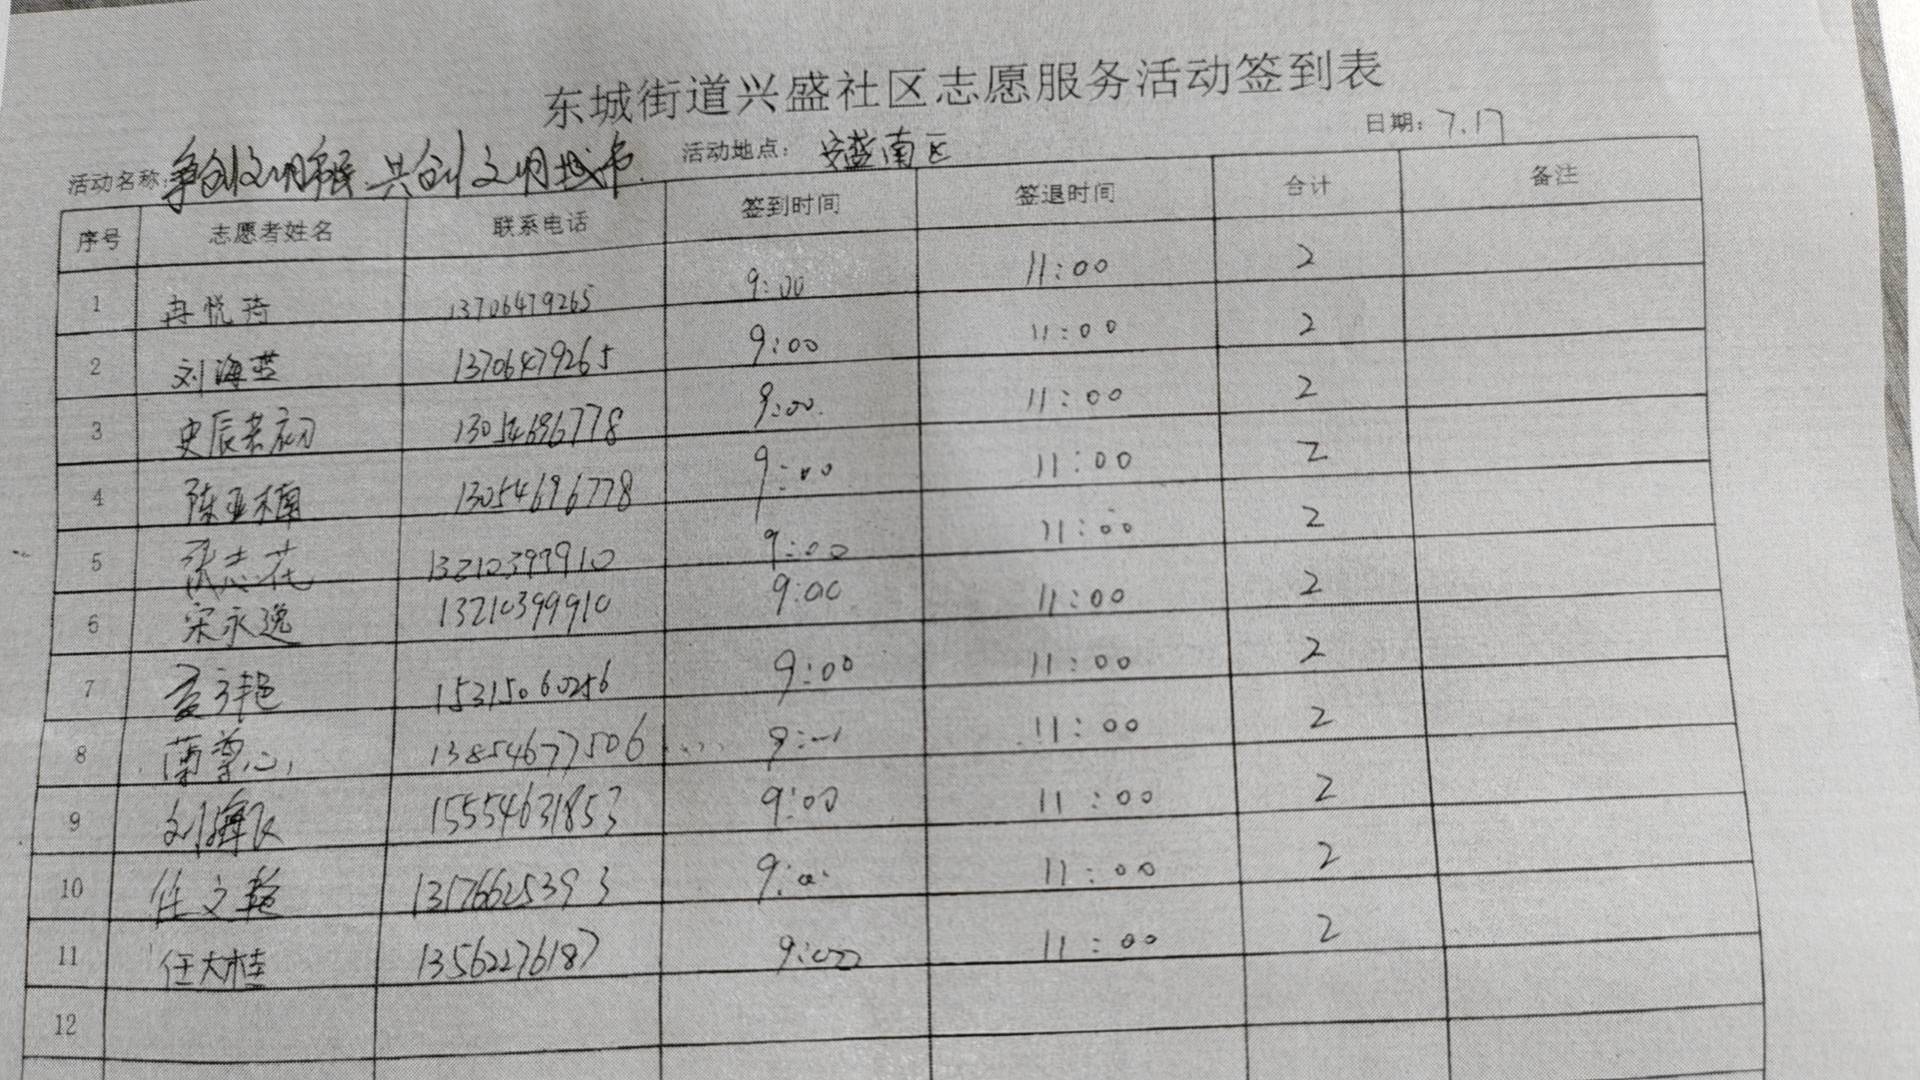 东城街道兴盛社区志愿服务活动签到表
活动名称: 争创文明市民 共创文明城市 活动地点: 安盛南区 日期: 7.17
序号 志愿者姓名 联系电话 签到时间 签退时间 合计 备注
1 冉悦琦 13706479265 9:00 11:00 2
2 刘海燕 13706479265 9:00 11:00 2
3 史辰若初 13054696778 9:00 11:00 2
4 陈亚楠 13054696778 9:00 11:00 2
5 张志花 13210399910 9:00 11:00 2
6 宋永逸 13210399910 9:00 11:00 2
7 15315060256 9:00 11:00 2
8 13854677506 11:00 2
9 15554631853 9:00 11:00 2
10 任文艳 13176625393 9:00 11:00 2
11 任大桂 13562276187 9:00 11:00 2
12